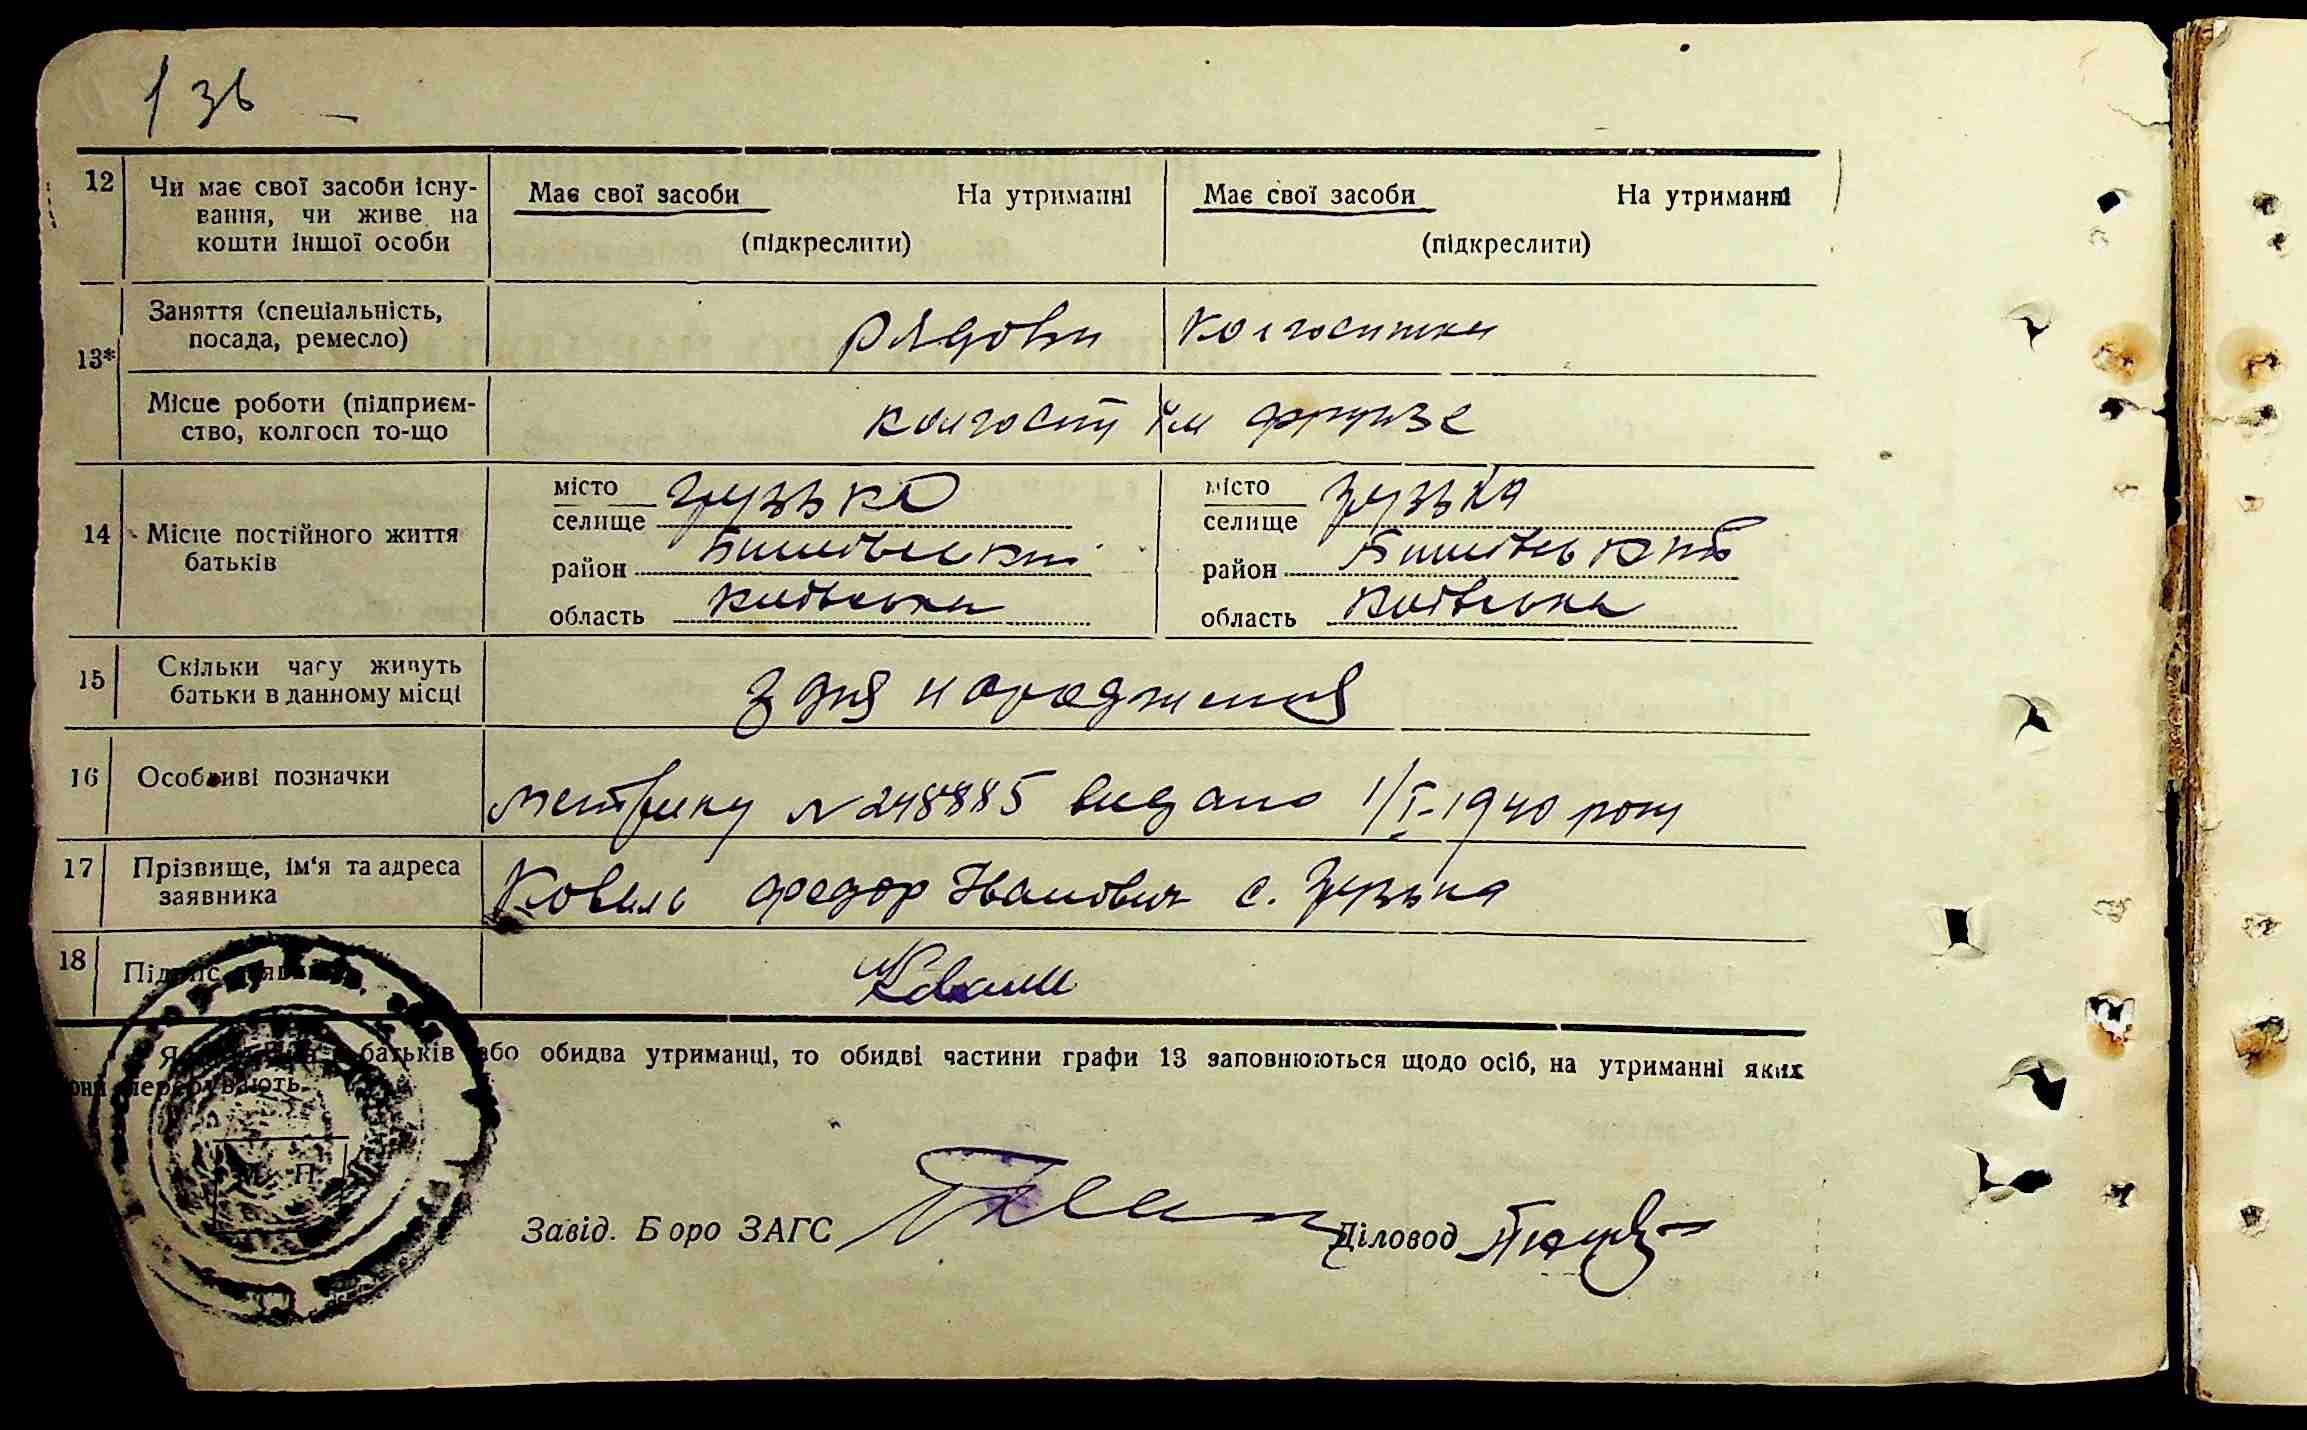 136
12 Чи має свої засоби існу- Має свої засоби На утриманні Має свої засоби На утриманні
вання, чи живе на
кошти іншої особи (підкреслити) (підкреслити)
Заняття (спеціальність,
посада, ремесло) рядови колгоспники
13*
Місце роботи (підприєм-
ство, колгосп то-що колгосп їм фрунзе
місто грузька місто грузька
14 Місце постійного життя селище селище
батьків район район
область київська область київська
15 Скільки часу живуть
батьки в данному місці з дня народження
16 Особливі позначки метрику № 248885 видано 1/I-1940 року
17 Прізвище, ім'я та адреса
заявника Коваль федор Іванович с. грузька
18 Коваль
батьків або обидва утриманці, то обидві частини графи 13 заповнюються щодо осіб, на утриманні яких
М. П.
Завід. Бюро ЗАГС Діловод